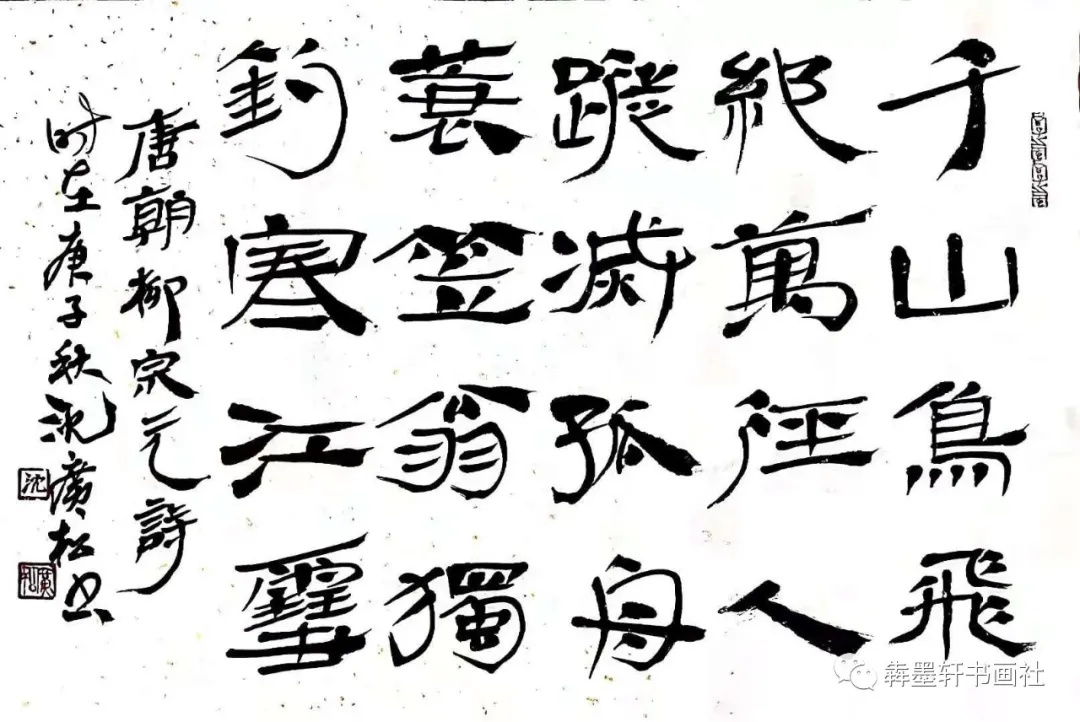 千山鳥飛
絶萬徑人
蹤滅孤舟
蓑笠翁獨
釣寒江雪
唐朝柳宗元詩
时在庚子秋沈廣松书
沈
廣松
犇墨轩书画社